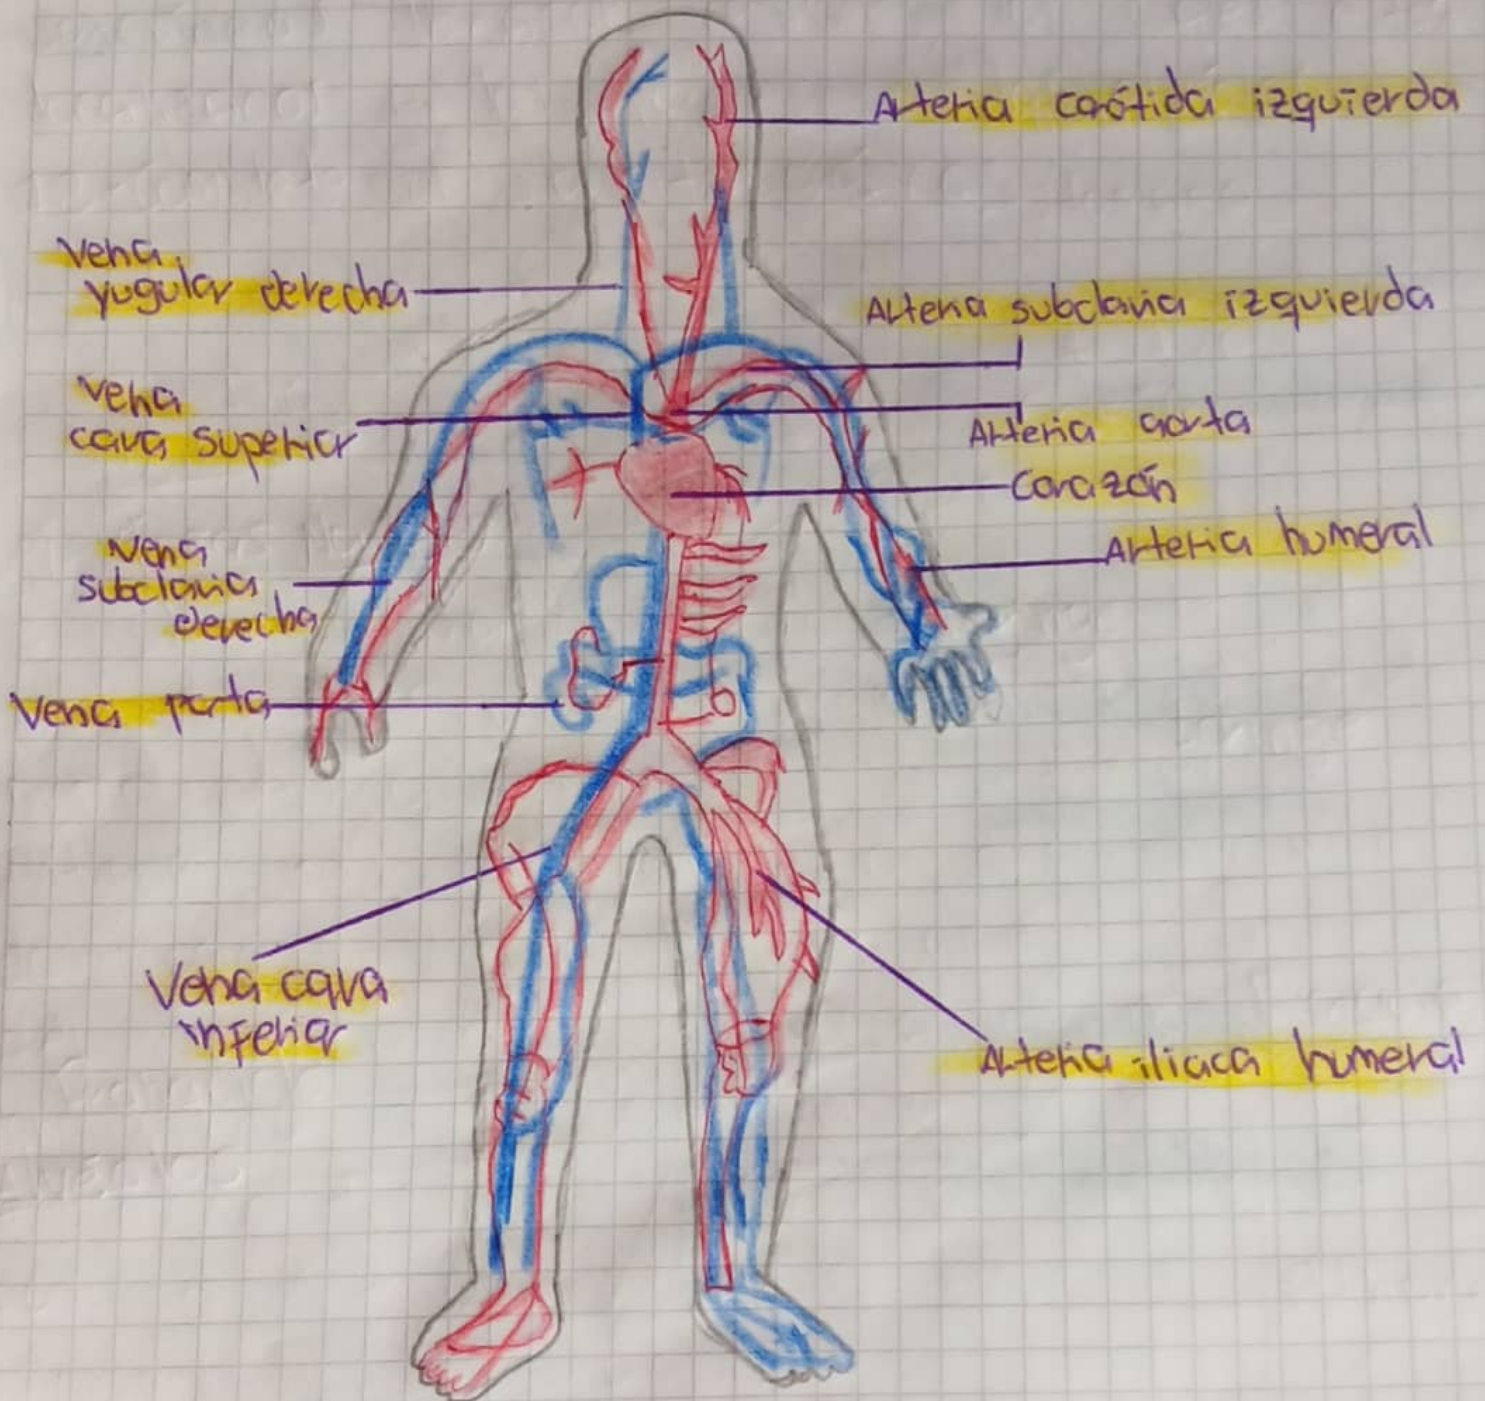 Arteria carótida izquierda
Vena
yugular derecha
Arteria subclavia izquierda
Vena
cava superior
Arteria aorta
corazón
Arteria humeral
Vena
subclavia
derecha
Vena porta
Vena cava
inferior
Arteria iliaca humeral